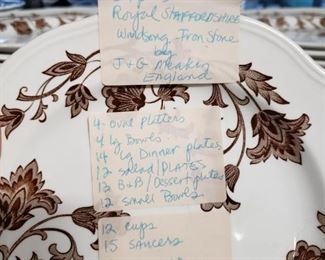 Royal STAFFORDSHIRE
Windsong Iron Stone
by
J + G Meakin
England
4 oval platters
4 lg Bowls
14 lg Dinner plates
12 salad/PLATES
12 B+B/Dessert plates
12 small Bowls
12 cups
15 saucers